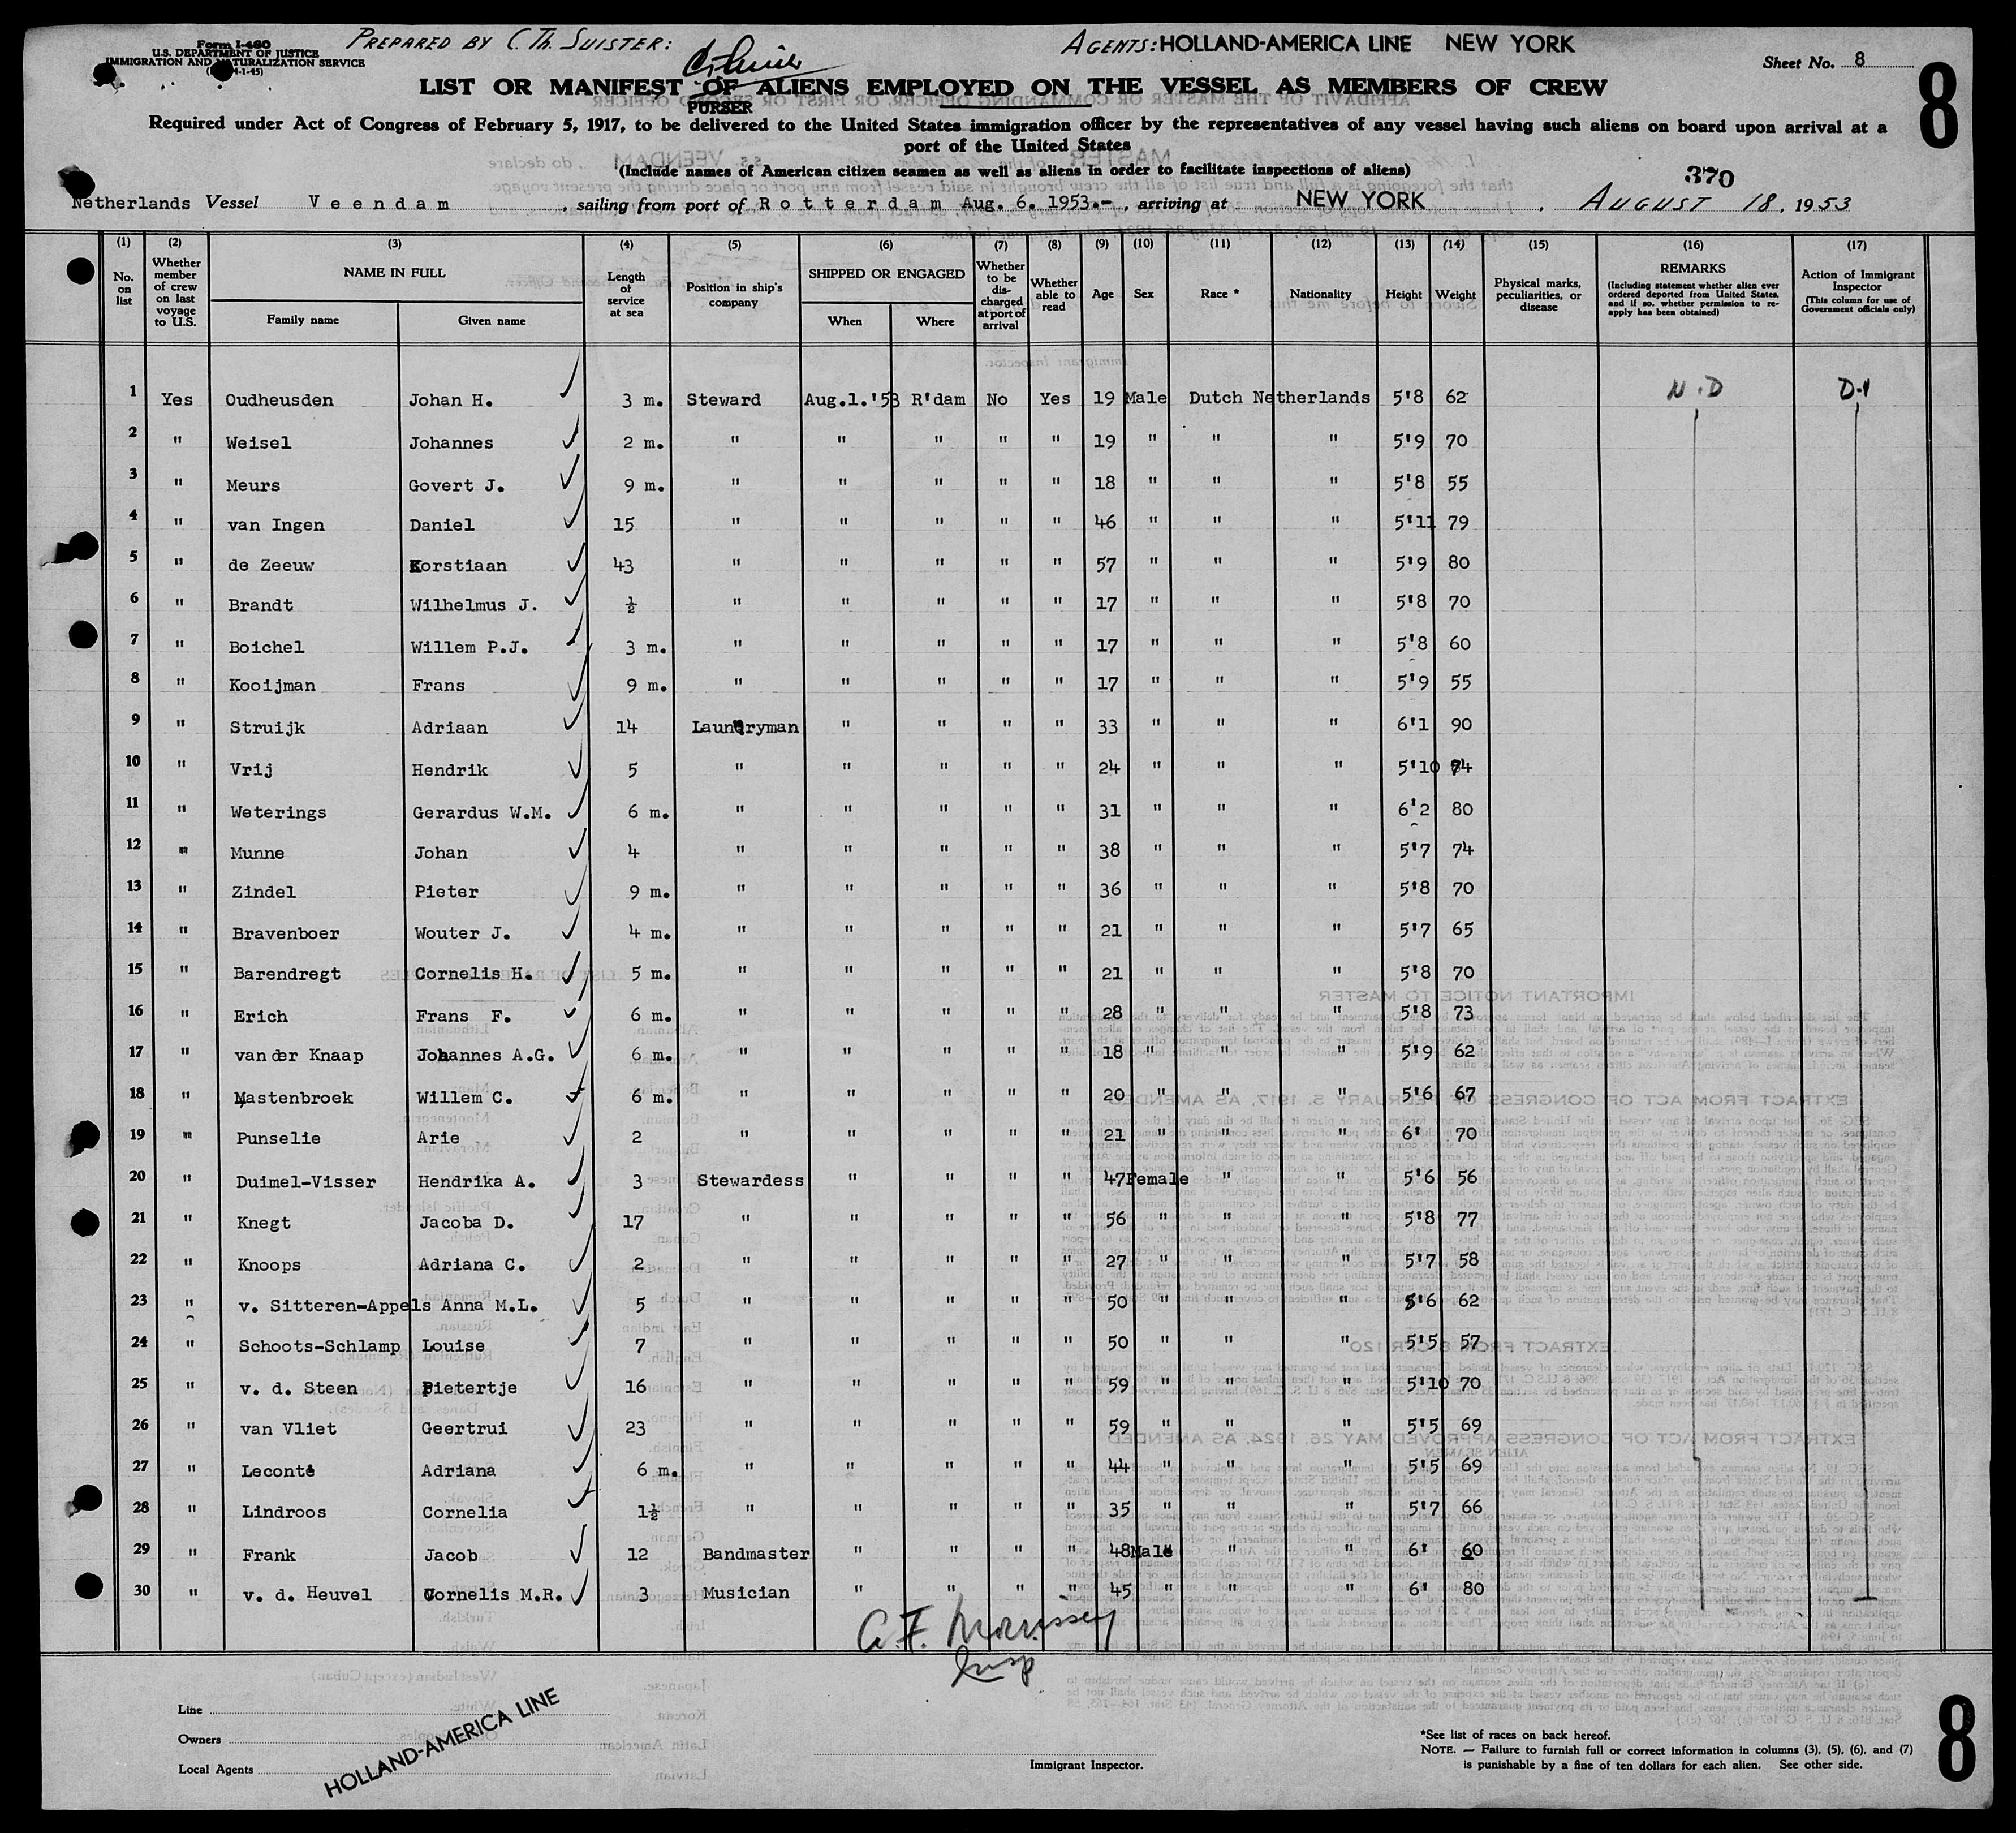 Form I-480
U.S. DEPARTMENT OF JUSTICE
IMMIGRATION AND NATURALIZATION SERVICE
PREPARED BY C. Th. SUISTER:
PURSER
AGENTS: HOLLAND-AMERICA LINE NEW YORK
Sheet No. 8
8
LIST OR MANIFEST OF ALIENS EMPLOYED ON THE VESSEL AS MEMBERS OF CREW
Required under Act of Congress of February 5, 1917, to be delivered to the United States immigration officer by the representatives of any vessel having such aliens on board upon arrival at a
port of the United States
(Include names of American citizen seamen as well as aliens in order to facilitate inspections of aliens)
370
Netherlands Vessel Veendam, sailing from port of Rotterdam Aug. 6. 1953.-, arriving at NEW YORK, AUGUST 18, 1953
(1) (2) (3) (4) (5) (6) (7) (8) (9) (10) (11) (12) (13) (14) (15) (16) (17)
No. on list
Whether member of crew on last voyage to U.S.
NAME IN FULL
Family name
Given name
Length of service at sea
Position in ship's company
SHIPPED OR ENGAGED
When
Where
Whether to be discharged at port of arrival
Whether able to read
Age
Sex
Race *
Nationality
Height
Weight
Physical marks, peculiarities, or disease
REMARKS
(Including statement whether alien ever ordered deported from United States, and if so, whether permission to re-apply has been obtained)
Action of Immigrant Inspector
(This column for use of Government officials only)
1 Yes Oudheusden Johan H. 3 m. Steward Aug.1.'53 R'dam No Yes 19 Male Dutch Netherlands 5'8 62 N.D D-1
2 " Weisel Johannes 2 m. " " " " " 19 " " " 5'9 70
3 " Meurs Govert J. 9 m. " " " " " 18 " " " 5'8 55
4 " van Ingen Daniel 15 " " " " " 46 " " " 5'11 79
5 " de Zeeuw Korstiaan 43 " " " " " 57 " " " 5'9 80
6 " Brandt Wilhelmus J. ½ " " " " " 17 " " " 5'8 70
7 " Boichel Willem P.J. 3 m. " " " " " 17 " " " 5'8 60
8 " Kooijman Frans 9 m. " " " " " 17 " " " 5'9 55
9 " Struijk Adriaan 14 Laundryman " " " " 33 " " " 6'1 90
10 " Vrij Hendrik 5 " " " " " 24 " " " 5'10
11 " Weterings Gerardus W.M. 6 m. " " " " " 31 " " " 6'2 80
12 " Munne Johan 4 " " " " " 38 " " " 5'7 74
13 " Zindel Pieter 9 m. " " " " " 36 " " " 5'8 70
14 " Bravenboer Wouter J. 4 m. " " " " " 21 " " " 5'7 65
15 " Barendregt Cornelis H. 5 m. " " " " " 21 " " " 5'8 70
16 " Erich Frans F. 6 m. " " " " " 28 " " " 5'8 73
17 " van der Knaap Johannes A.G. 6 m. " " " " " 18 " " " 5'9 62
18 " Mastenbroek Willem C. 6 m. " " " " " 20 " " " 5'6 67
19 " Punselie Arie 2 " " " " " 21 " " " 6' 70
20 " Duimel-Visser Hendrika A. 3 Stewardess " " " " 47 Female " " 5'6 56
21 " Knegt Jacoba D. 17 " " " " " 56 " " " 5'8 77
22 " Knoops Adriana C. 2 " " " " " 27 " " " 5'7 58
23 " v. Sitteren-Appels Anna M.L. 5 " " " " " 50 " " " 5'6 62
24 " Schoots-Schlamp Louise 7 " " " " " 50 " " " 5'5 57
25 " v. d. Steen Pietertje 16 " " " " " 59 " " " 5'10 70
26 " van Vliet Geertrui 23 " " " " " 59 " " " 5'5 69
27 " Leconte Adriana 6 m. " " " " " 44 " " " 5'5 69
28 " Lindroos Cornelia 1½ " " " " " 35 " " " 5'7 66
29 " Frank Jacob 12 Bandmaster " " " " 48 Male " " 6' 60
30 " v. d. Heuvel Cornelis M.R. 3 Musician " " " " 45 " " " 6' 80
A.F. Morrissey
Insp
Line
Owners
Local Agents
HOLLAND-AMERICA LINE
Immigrant Inspector.
*See list of races on back hereof.
NOTE. — Failure to furnish full or correct information in columns (3), (5), (6), and (7)
is punishable by a fine of ten dollars for each alien. See other side.
8